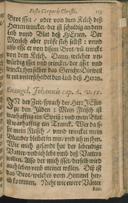 Festo Corporis Christi. 153
Brot isset / oder von dem Kelch des
HErrn trincket / der ist schuldig an dem
Leib vnnd Blut des HErrn. Der
Mensch aber prüfe sich selbst : vnnd
also esse er von disem Brot vnnd trincke
von dem Kelch. Dann welcher vn-
würdig isset vnd trincket / der isset vnd
trincket jhm selbst das Gericht / damit
er nit vnderscheidet den Leib des HErrn.
Euangel. Johannis cap. 6. v. 55.
IN der Zeit / sprach der HErr JEsus
zu den Jüden : Mein Fleisch ist
warhafftig ein Speiß / vnd mein Blut
ist warhafftig ein Tranck. Wer da
isset mein Fleisch / vnnd trincket mein
Blut / der bleibet in mir / vnd ich in jhm.
Wie mich gesandt hat der lebendige
Vatter / vnd ich lebe vmb des Vatters
willen : Also der mich isset / derselb wird
auch leben vmb meinet willen. Diß
ist das Brot / das vom Himmel
kommen ist. Nicht wie ewere Vätter